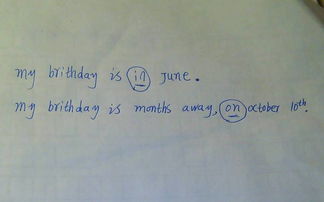 my brithday is in June.
my brithday is months away, on october 10th.